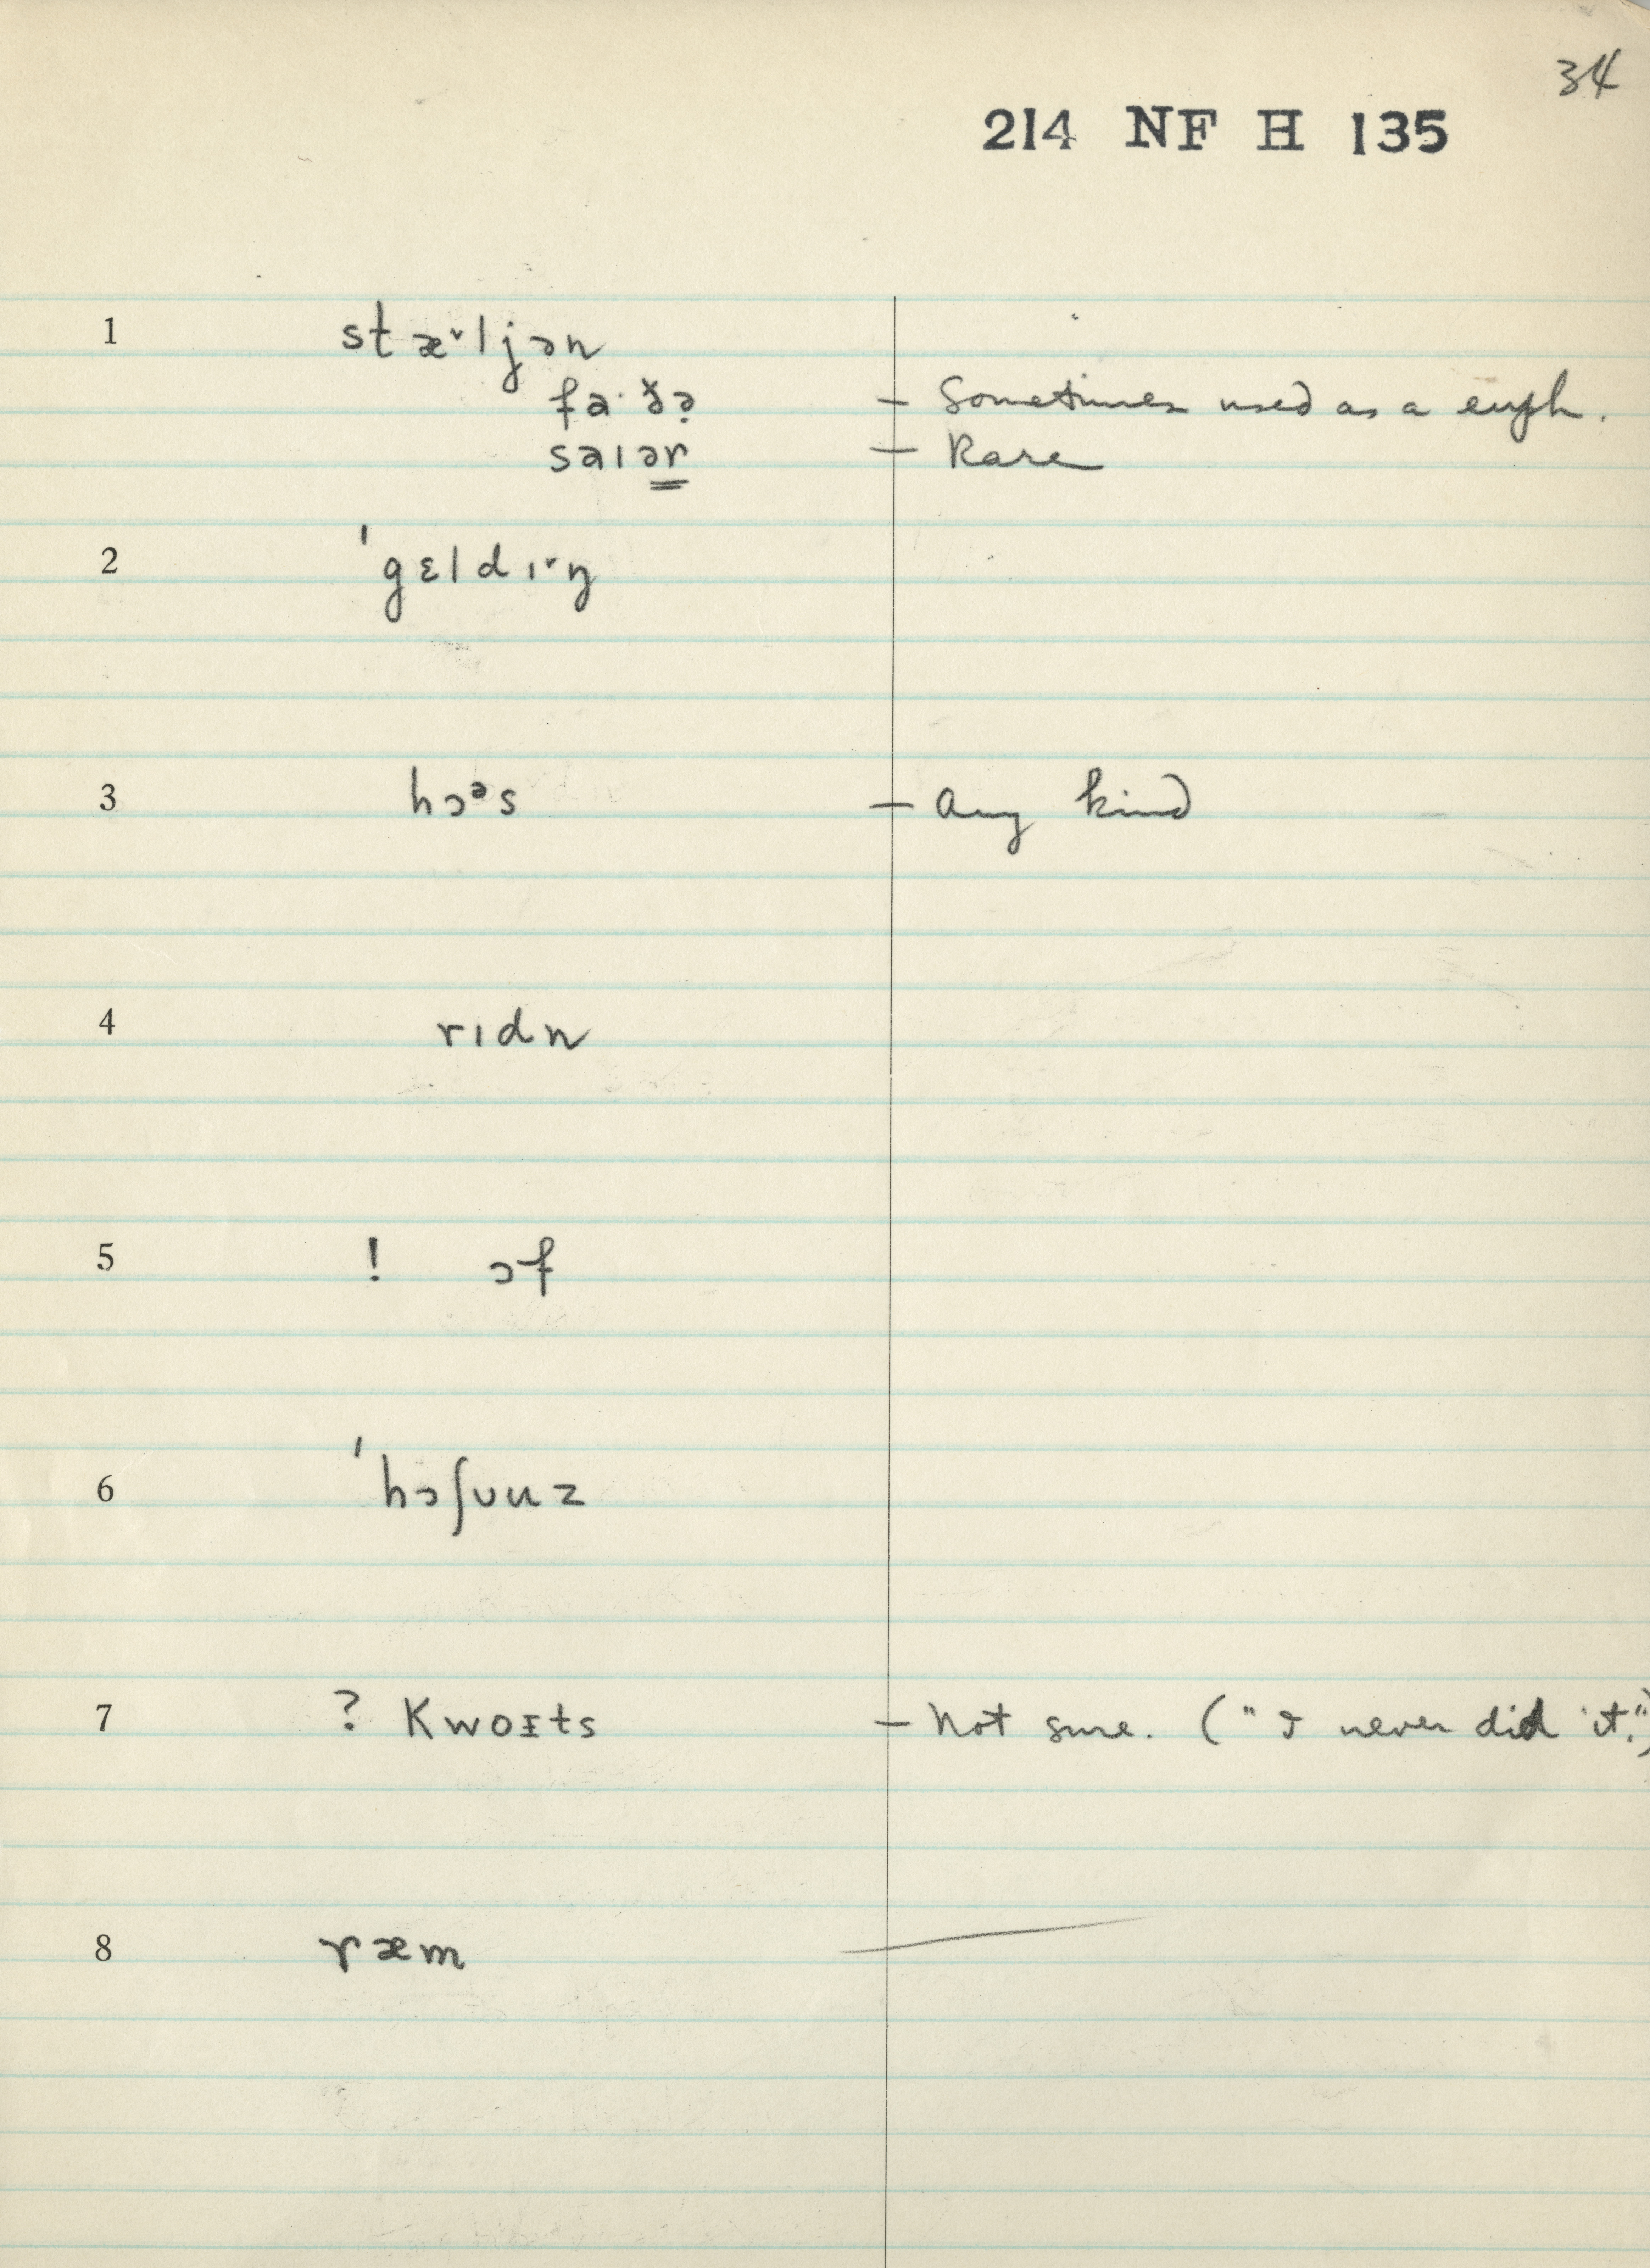 34
214 NF H 135
1 stæ˅ljən
fa·ðə̣ — Sometimes used as a euph.
saɪər — Rare
2 ˈgɛldɪ˅ŋ
3 hɔᵊs — Any kind
4 rɪdn
5 ! ɔf
6 ˈhɔʃuuz
7 ? Kwoɪts — Not sure. ("I never did it.")
8 ræm —